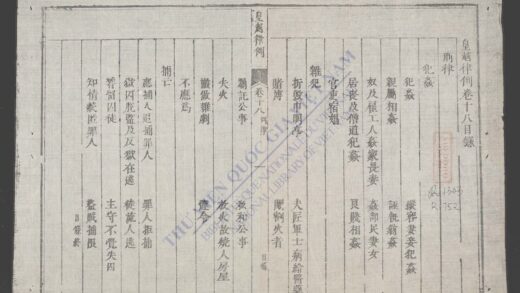 皇越律例卷十八目錄
刑律
犯姦
犯姦
縱容妻妾犯姦
親屬相姦
誣執翁姦
奴及雇工人姦家長妻
姦部民妻女
居喪及僧道犯姦
良賤相姦
官吏宿娼
雜犯
拆毀申明亭
夫匠軍士病給醫藥
賭博
閹割火者
囑託公事
私和公事
失火
放火故燒人房屋
搬做雜劇
違令
不應為
捕亡
應捕人追捕罪人
罪人拒捕
獄囚脫監及反獄在逃
徒流人逃
稽留囚徒
主守不覺失囚
知情藏匿罪人
盜賊捕限
皇越律例
卷十八 刑律
目錄
THƯ VIỆN QUỐC GIA VIỆT NAM
BIBLIOTHÈQUE NATIONALE DU VIETNAM
NATIONAL LIBRARY OF VIETNAM
R.752